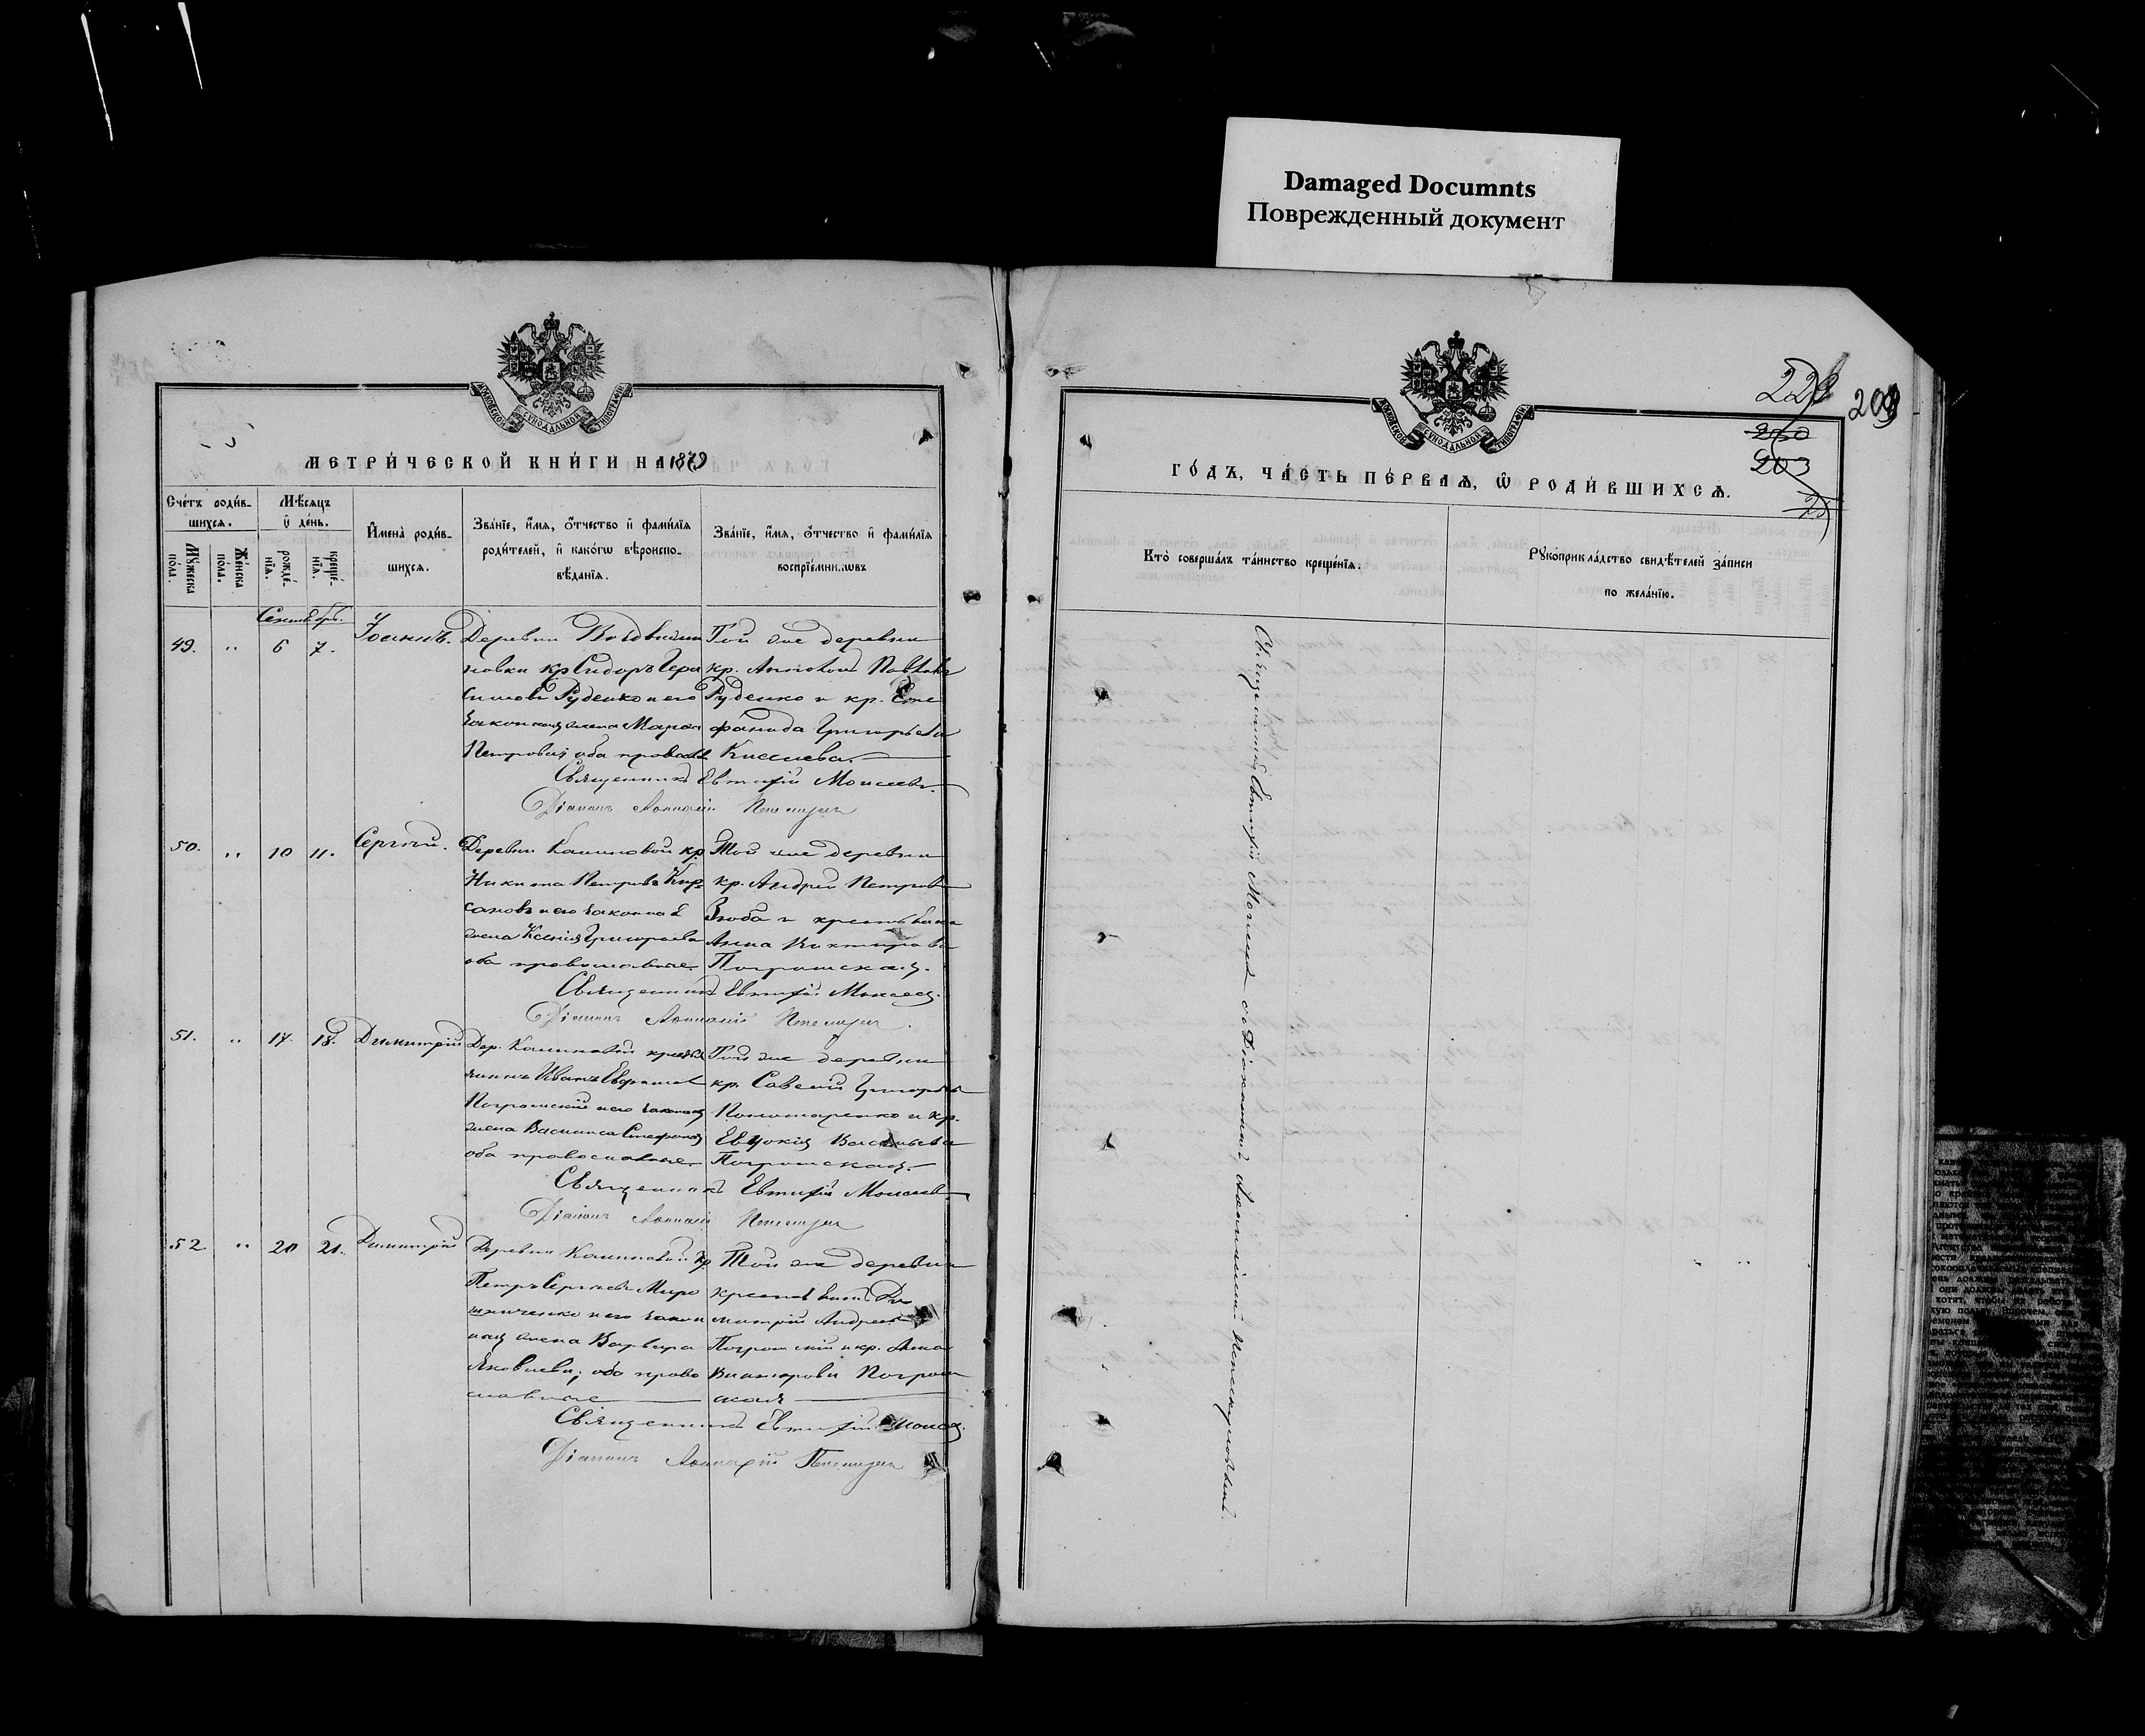 Damaged Documnts
Поврежденный документ
МОСКОВСКОЙ СѴНОДАЛЬНОЙ ТИПОГРАФІИ
МЕТРИ́ЧЕСКОЙ КНИ́ГИ НА 1879
Сче́тъ роди́в-
шихся.
Мѣ́сяцъ
и҆ де́нь.
Мꙋ́жеска по́ла.
Же́нска по́ла.
рожде́-нїѧ.
креще́-нїѧ.
И҆мена̀ роди́в-
шихсѧ.
Зва́нїе, и҆́мѧ, ѻ҆́тчество и҆ фами́лїѧ
роди́телей, и҆ како́гѡ вѣроиспо-
вѣ́данїѧ.
Зва́нїе, и҆́мѧ, ѻ҆́тчество и҆ фами́лїѧ
воспрїе́мникѡвъ
Сентябрь.
49. " 6 7. Іоаннъ.
Деревни
новки кр Сидоръ Гера
симовъ Руденко и его
законная жена Марѳа
Петрова; оба правосл
Той же деревни
кр. Павловъ
Руденко и кр. Сте
фанида Григорьева
Киселева.
Священникъ Евтихій Моисеевъ.
Діаконъ
50. " 10 11. Сергій.
Деревни Калиновой кр.
Никита Петровъ Кир
сановъ и его законная
жена Ксенія Григорьева
оба православные.
Той же деревни
кр. Андрей Петровъ
Зюба и крестьянка
Анна Викторова
Погромская.
Священникъ Евтихій Моисеевъ.
Діаконъ
51. " 17. 18. Димитрій
Дер. Калиновой крестья
нинъ Иванъ
Погромскій и его законная
жена Василиса Стефанова
оба православные.
Той же деревни
кр. Савелій Григорьевъ
Пономаренко и кр.
Евдокія Васильева
Погромская.
Священникъ Евтихій Моисеевъ
Діаконъ
52. " 20 21. Димитрій
Деревни Калиновой кр.
Петръ Сергѣевъ Миро
шниченко и его закон
ная жена Варвара
Яковлева; оба право
славные
Той же деревни
крестьянинъ Ди
митрій Андреевъ
Погромскій и кр. Анна
Викторова Погром
ская
Священникъ Евтихій Моисеевъ.
Діаконъ
МОСКОВСКОЙ СѴНОДАЛЬНОЙ ТИПОГРАФІИ
209
203
ГО́ДЪ, ЧА́СТЬ ПЕ́РВАѦ, Ѡ҆ РОДИ́ВШИХСѦ.
Кто̀ соверша́лъ та́инство креще́нїѧ.
Рꙋкоприкла́дство свидѣ́телей за́писи
по жела́нїю.
Священникъ Евтихій Моисеевъ съ Діакономъ